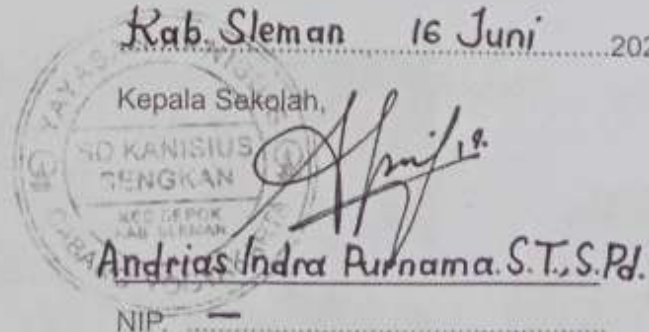 Kab. Sleman 16 Juni 202
Kepala Sekolah,
YAYASAN KANISIUS
SD KANISIUS
SENGKAN
KEC DEPOK
KAB SLEMAN
CABANG
Andrias Indra Purnama. S.T., S.Pd.
NIP. —